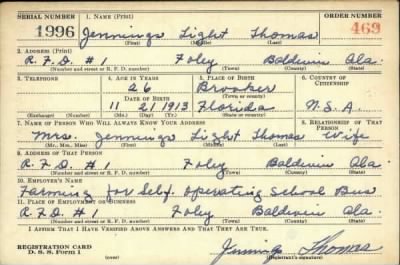 SERIAL NUMBER 1. NAME (Print) ORDER NUMBER
1996 Jennings Light Thomas 469
(First) (Middle) (Last)
2. ADDRESS (Print)
R.F.D. #1 Foley Baldwin Ala.
(Number and street or R. F. D. number) (Town) (County) (State)
3. TELEPHONE 4. AGE IN YEARS 5. PLACE OF BIRTH 6. COUNTRY OF CITIZENSHIP
26 Brooker
(Town or county)
DATE OF BIRTH
11 21 1913 Florida U.S.A.
(Exchange) (Number) (Mo.) (Day) (Yr.) (State or country)
7. NAME OF PERSON WHO WILL ALWAYS KNOW YOUR ADDRESS 8. RELATIONSHIP OF THAT PERSON
Mrs. Jennings Light Thomas Wife
(Mr., Mrs., Miss) (First) (Middle) (Last)
9. ADDRESS OF THAT PERSON
R.F.D. #1 Foley Baldwin Ala
(Number and street or R. F. D. number) (Town) (County) (State)
10. EMPLOYER'S NAME
Farming for Self. Operating School Bus
11. PLACE OF EMPLOYMENT OR BUSINESS
R.F.D. #1 Foley Baldwin Ala.
(Number and street or R. F. D. number) (Town) (County) (State)
I AFFIRM THAT I HAVE VERIFIED ABOVE ANSWERS AND THAT THEY ARE TRUE.
REGISTRATION CARD
D. S. S. Form 1 (over) Jennings Thomas
(Registrant's signature)